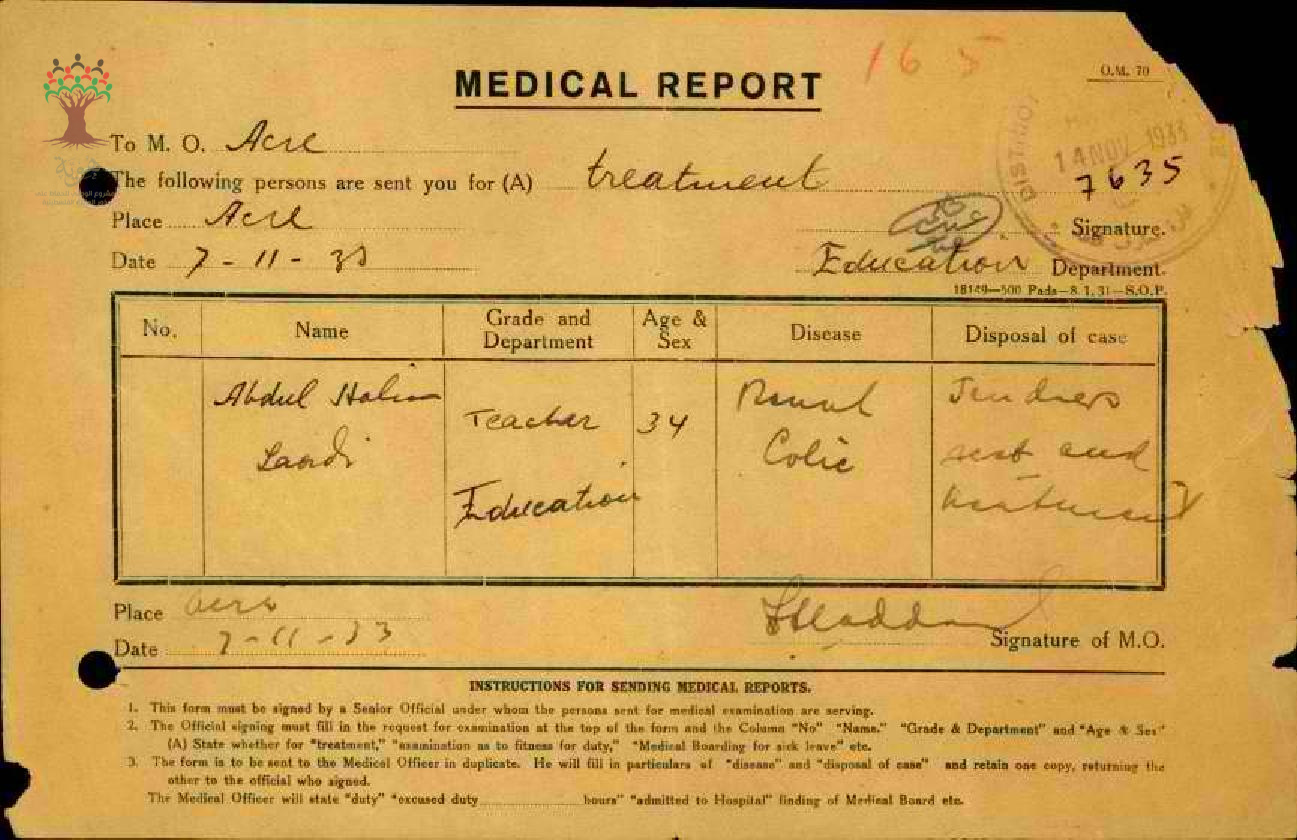 165
O.M. 70
MEDICAL REPORT
To M. O. Acre
14 NOV 1933
The following persons are sent you for (A) treatment
7635
Place Acre
Signature.
Date 7-11-33
Education Department.
18149—500 Pads—8.1.31—S.O.P.
No. Name Grade and Department Age & Sex Disease Disposal of case
Abdul Halim Teacher 34 Renal
Colic rest and
Education
Place Acre
Date 7-11-33
Haddad Signature of M.O.
INSTRUCTIONS FOR SENDING MEDICAL REPORTS.
1. This form must be signed by a Senior Official under whom the persons sent for medical examination are serving.
2. The Official signing must fill in the request for examination at the top of the form and the Column "No" "Name." "Grade & Department" and "Age & Sex"
(A) State whether for "treatment," "examination as to fitness for duty," "Medical Boarding for sick leave" etc.
3. The form is to be sent to the Medical Officer in duplicate. He will fill in particulars of "disease" and "disposal of case" and retain one copy, returning the
other to the official who signed.
The Medical Officer will state "duty" "excused duty ............ hours" "admitted to Hospital" finding of Medical Board etc.